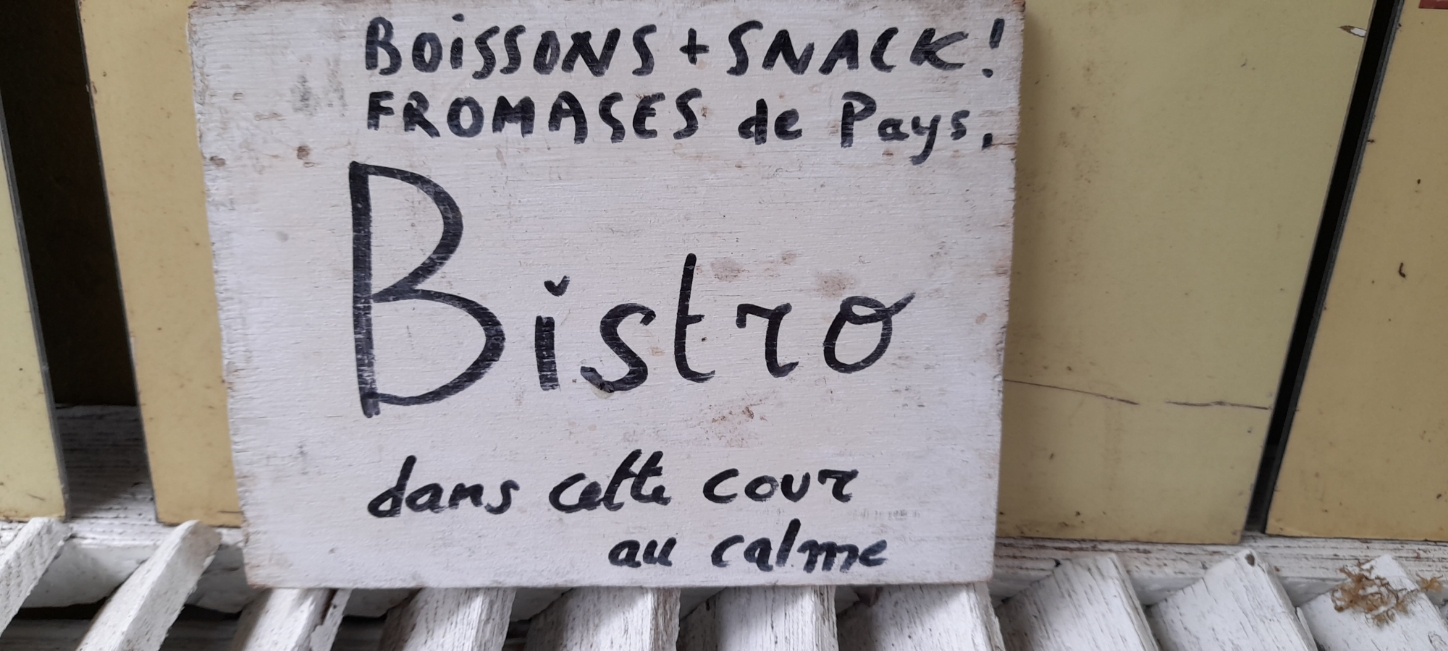 BOISSONS + SNACK!
FROMAGES de Pays.
Bistro
dans cette cour
au calme